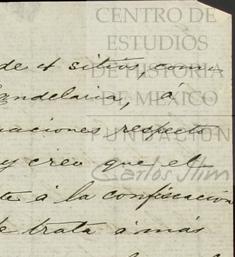 CENTRO DE
ESTUDIOS
DE HISTORIA
DE MEXICO
FUNDACION
Carlos Slim
de 4 sitios, como
Candelaria, á
naciones respecto
y creo que el
te á la confiscacion
de trata á más